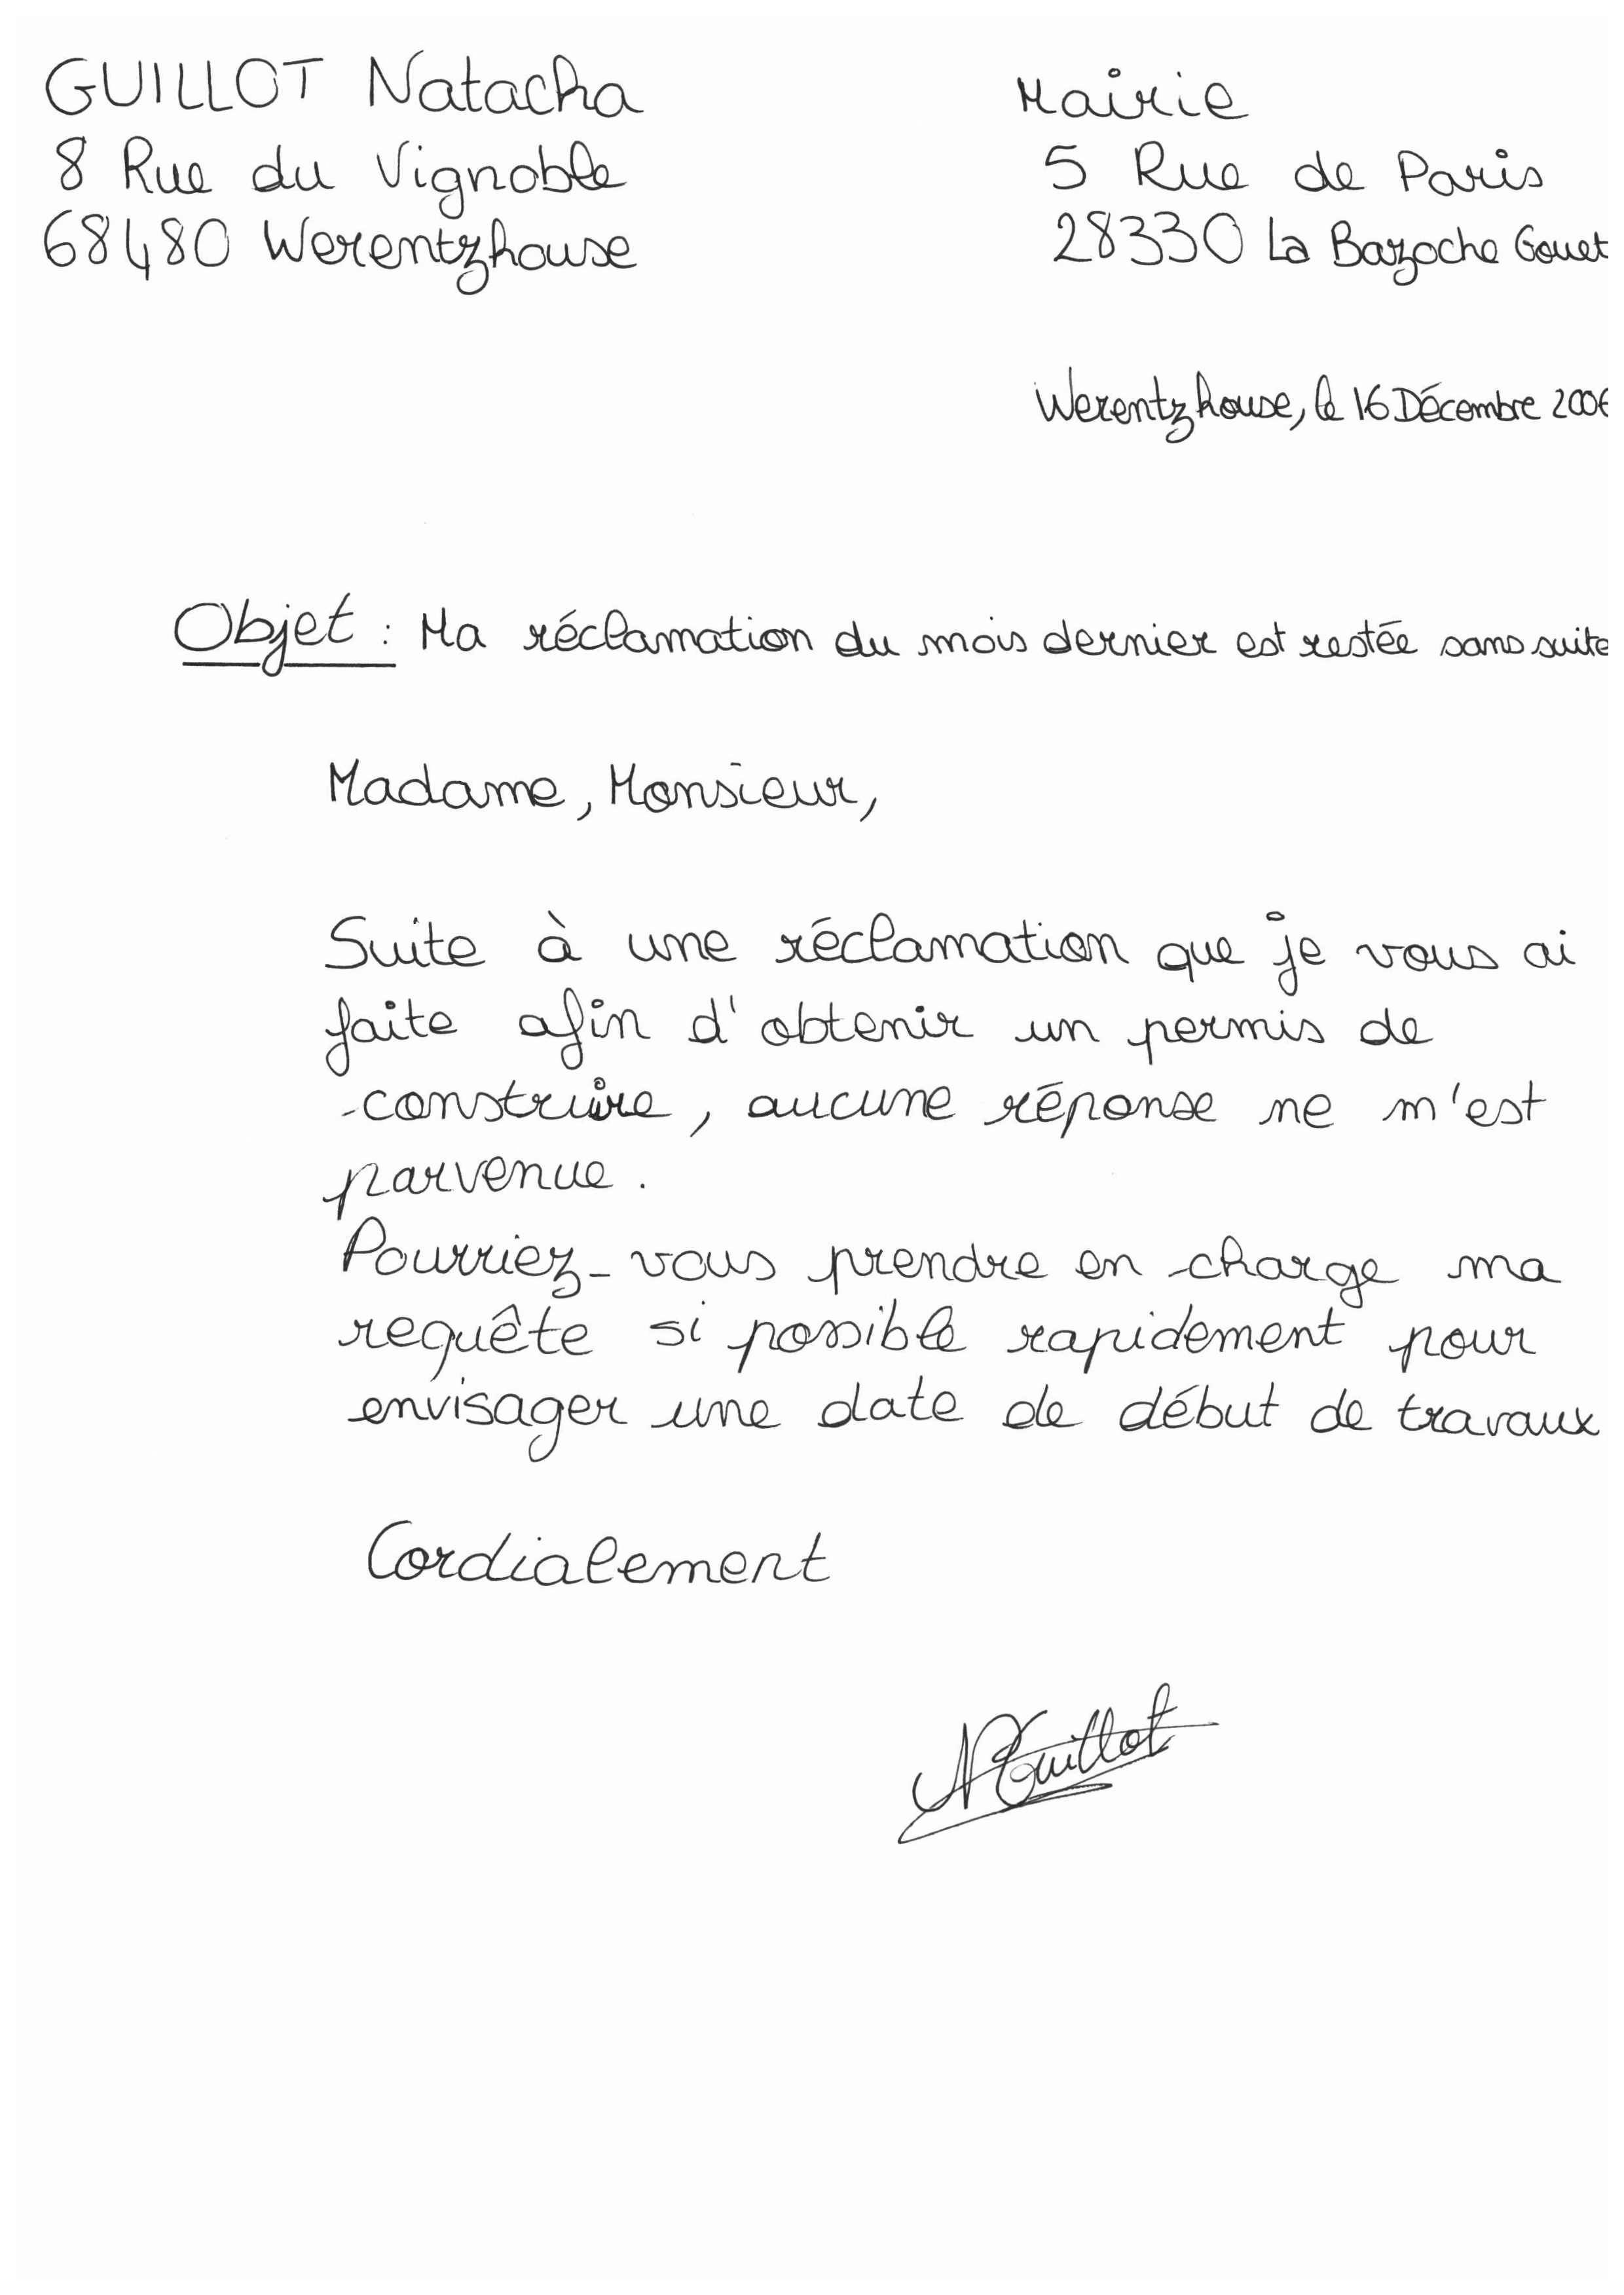 GUILLOT Natacha
8 Rue du Vignoble
68480 Werentzhouse
Mairie
5 Rue de Paris
28330 La Bazoche Gouet
Werentzhouse, le 16 Décembre 2006
Objet : Ma réclamation du mois dernier est restée sans suite
Madame, Monsieur,
Suite à une réclamation que je vous ai
faite afin d'obtenir un permis de
construire, aucune réponse ne m'est
parvenue.
Pourriez-vous prendre en charge ma
requête si possible rapidement pour
envisager une date de début de travaux
Cordialement
NGuillot